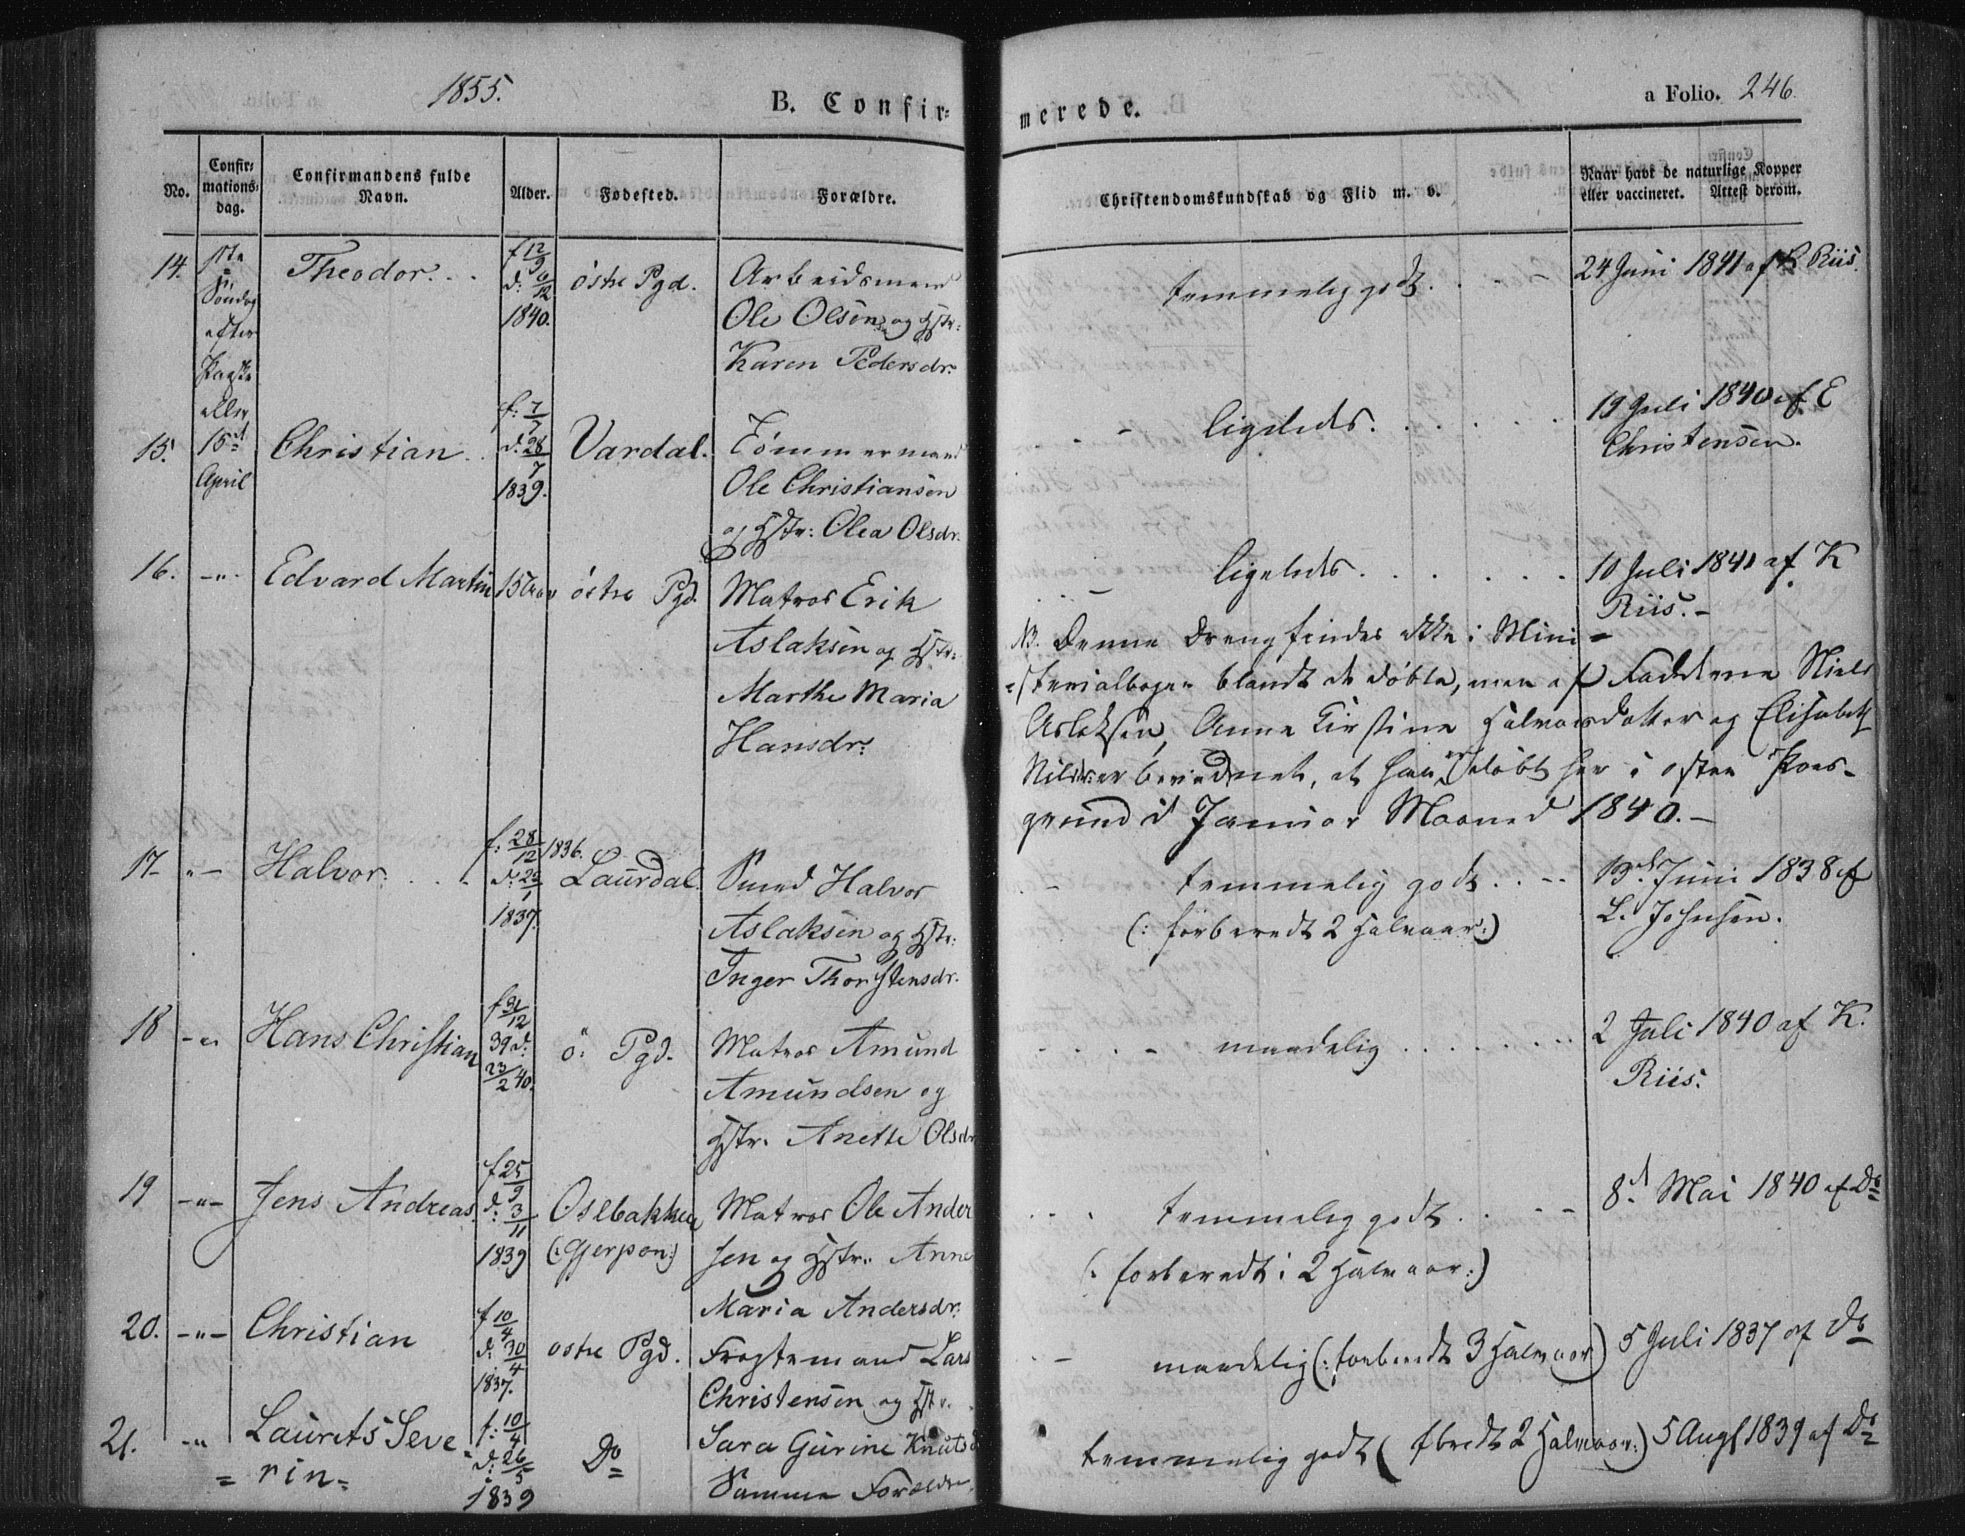 1855.
B. Confir=
merede.
a Folio. 246.
No.
Confir=
mations=
dag.
Confirmandens fulde
Navn.
Alder.
Fødested.
Forældre.
Christendomskundskab og Flid m. v.
Naar havt de naturlige Kopper
eller vaccineret. Attest derom.
14.
1ste
Søndag
efter
Paaske
eller
15d
April
Theodor.
f 12/9
d: 6/12
1840.
östre Pgd.
Arbeidsmand
Ole Olsen og Hstr:
Karen Pedersdr.
temmelig godt.
24 Juni 1841 af K Riis.
15.
Christian.
f: 7/7
d. 28/7
1839.
Vardal.
Tømmermand
Ole Christiansen
og Hstr: Olea Olsdr.
ligeledes.
19 Juli 1840 af E
Christensen.
16. -"-
Edvard Martin
15 Aar
östre Pgd.
Matros Erik
Aslaksen og Hstr:
Marthe Maria
Hansdr:
ligeledes.
10 Juli 1841 af K
Riis.-
NB. Denne Dreng findes ikke i Mini=
=sterialbogen blandt de døbte, men af Fadderne Niels
Aslaksen, Anne Kirstine Halvorsdatter og Elisabeth
Nilsdr er bevidnet, at han er døbt her i østre Pors-
grund i Januar Maaned 1840.-
17- "-
Halvor.
f: 28/12 1836.
d: 25/1
1837.
Laurdal.
Smed Halvor
Aslaksen og Hstr:
Inger Thorstensdr.
temmelig godt.
(: forberedt 2 Halvaar:)
13d Juni 1838 af
L. Johnsen.
18 -"-
Hans Christian
f 31/12
39 d:
23/2 40.
ö: Pgd.
Matros Amund
Amundsen og
Hstr. Anette Olsdr
maadelig
2 Juli 1840 af K.
Riis.
19 -"-
Jens Andreas.
f 25/9
d: 3/11
1839
Oslbakken
(: Gjerpen:)
Matros Ole Ander
sen og Hstr: Anne
Maria Andersdr.
temmelig godt.
(: forberedt i 2 Halvaar:)
8d Mai 1840 af Do
20. -"-
Christian
f 10/4
d: 30/4
1837.
ostre Pgd.
Fragtemand Lars
Christensen og Hstr.
Sara Gurine Knutsd
maadelig (: forberedt 3 Halvaar)
5 Juli 1837 af Do
21. -"
Laurits Seve
= rin=
f: 10/4
d: 26/5
1839
Do
Samme Forældre
temmelig godt ( fbredt 2 Halvaar:)
5 Augt 1839 af Do